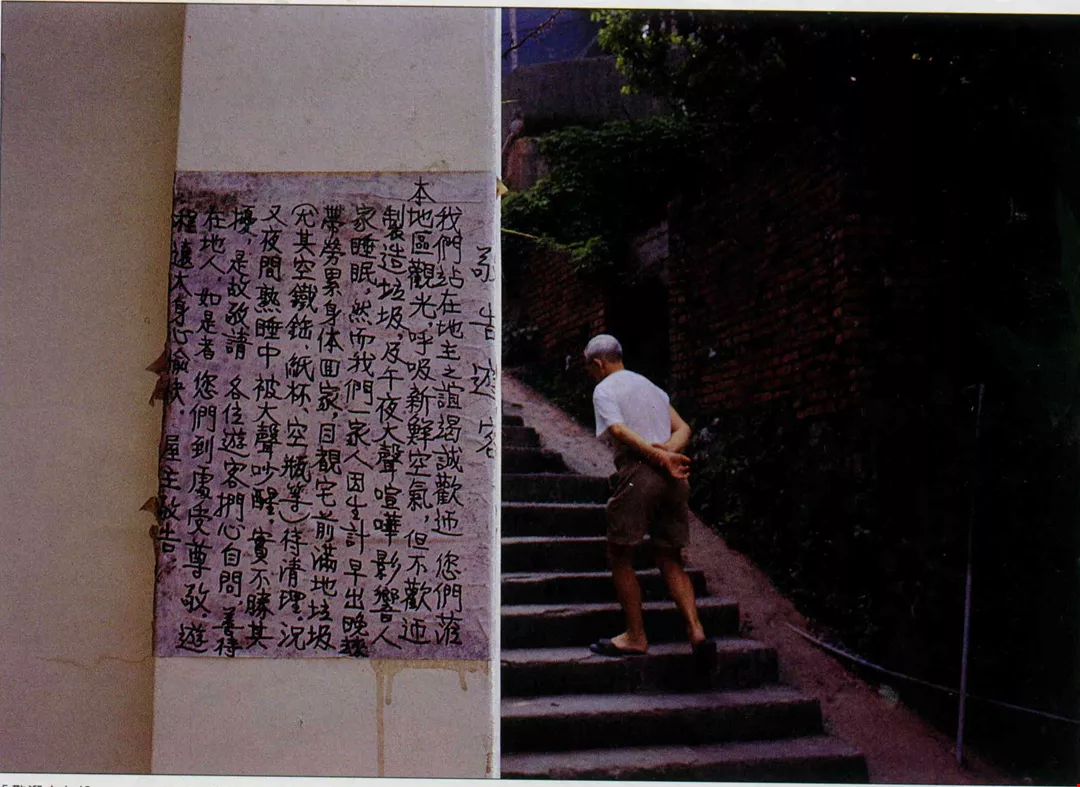 敬告遊客
我們站在地主之誼竭誠歡迎 您們蒞
本地區觀光,呼吸新鮮空氣,但不歡迎
製造垃圾,及午夜大聲喧嘩影響人
家睡眠,然而我們一家人因生計早出晚
勞累身体回家,目覩宅前滿地垃圾
(尤其空鐵、紙杯、空瓶等)待清理,况
又夜間熟睡中被大聲吵醒,實不勝其
擾,是故敬請 各位遊客捫心自問,善待
在地人 如是者您們到處受尊敬。遊
程遠大身心愉快。 屋主敬告。